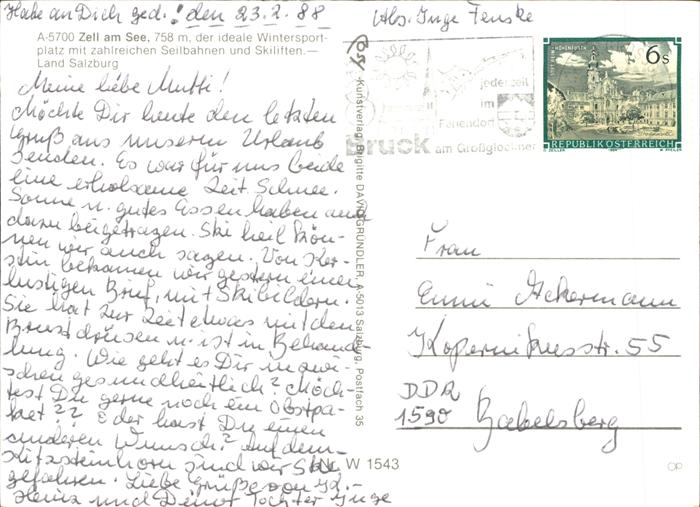 Habe an Dich ged.! den 23.2.88
Abs. Inge Fenske
A-5700 Zell am See, 758 m, der ideale Wintersport-
platz mit zahlreichen Seilbahnen und Skiliften. —
Land Salzburg
Meine liebe Mutti!
Möchte Dir heute den letzten
Gruß aus unserem Urlaub
senden. Es war für uns beide
eine erholsame Zeit. Schnee.
Sonne u. gutes Essen haben auch
dazu beigetragen. Ski heil kön-
nen wir auch sagen. Von Ker-
stin bekamen wir gestern einen
lustigen Brief, mit Skibildern.
Sie hat zur Zeit etwas mit den
Brustdrüsen u. ist in Behand-
lung. Wie geht es Dir inzwi-
schen gesundheitlich? Möch-
test Du gerne noch ein Obstpa-
ket?? Oder hast Du einen
anderen Wunsch? Auf dem
Kitzsteinhorn sind wir Ski
gefahren. Liebe Grüße von
Heinz und Deiner Tochter Inge
Kunstverlag Brigitte DAVID-GRÜNDLER, A-5013 Salzburg, Postfach 35
jederzeit
im
Feriendorf
Bruck am Großglockner
6 S
REPUBLIK ÖSTERREICH
Frau
Emmi Ackermann
Kopernikusstr. 55
DDR
1590 Babelsberg
W 1543
OP